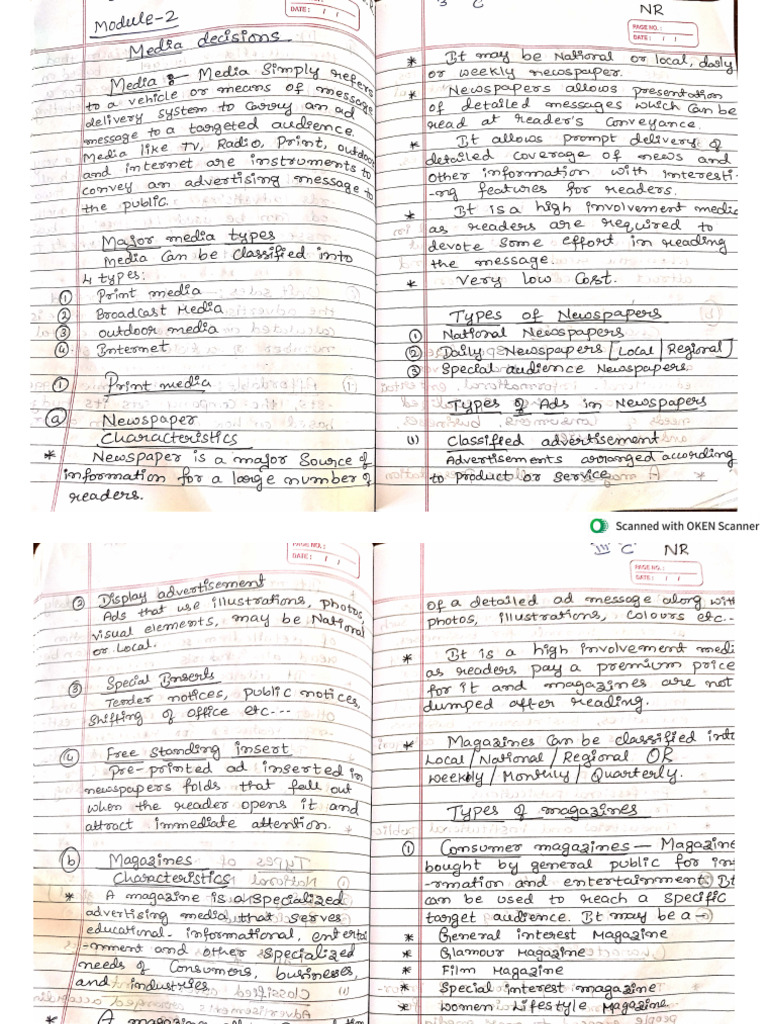 Module-2
Media decisions
Media :- Media Simply refers
to a vehicle or means of message
delivery system to carry an ad
message to a targeted audience.
Media like TV, Radio, Print, outdoor
and internet are instruments to
convey an advertising message to
the public.
Major media types
Media can be classified into
4 types:
① Print media
② Broadcast Media
③ outdoor media
④ Internet
① Print media
ⓐ Newspaper
Characteristics
* Newspaper is a major Source of
information for a large number of
readers.
C
NR
PAGE NO.:
DATE: / /
* It may be National or local, daily
or weekly newspaper.
* Newspapers allows presentation
of detailed messages which can be
read at reader's conveyance.
* It allows prompt delivery of
detailed coverage of news and
other information with interesti-
-ng features for readers.
* It is a high involvement media
as readers are required to
devote some effort in reading
the message.
* Very low Cost.
Types of Newspapers
① National Newspapers
② Daily Newspapers [Local / Regional]
③ Special audience Newspapers.
Types of Ads in Newspapers
(1) Classified advertisement
Advertisements arranged according
to product or service.
Scanned with OKEN Scanner
PAGE NO.:
DATE: / /
② Display advertisement
Ads that use illustrations, photos,
visual elements, may be National
or Local.
③ Special Inserts
Tender notices, public notices,
Shifting of office etc---
④ Free Standing insert
Pre-printed ad inserted in
newspapers folds that fall out
when the reader opens it and
attract immediate attention.
ⓑ Magazines
Characteristics
* A magazine is a specialized
advertising media that serves
educational, informational, entertai
-nment and other specialized
needs of Consumers, businesses,
and industries.
III C
NR
PAGE NO.:
DATE: / /
of a detailed ad message along with
photos, illustrations, colours etc--
* It is a high involvement medi
as readers pay a premium price
for it and magazines are not
dumped after reading.
* Magazines Can be classified into
Local / National / Regional OR
weekly / Monthly / Quarterly.
Types of magazines
① Consumer magazines — Magazine
bought by general public for info
-rmation and entertainment. It
can be used to reach a specific
target audience. It may be a →
* General interest Magazine
* Glamour Magazine
* Film Magazine
* Special interest magazine
* women Lifestyle Magazine